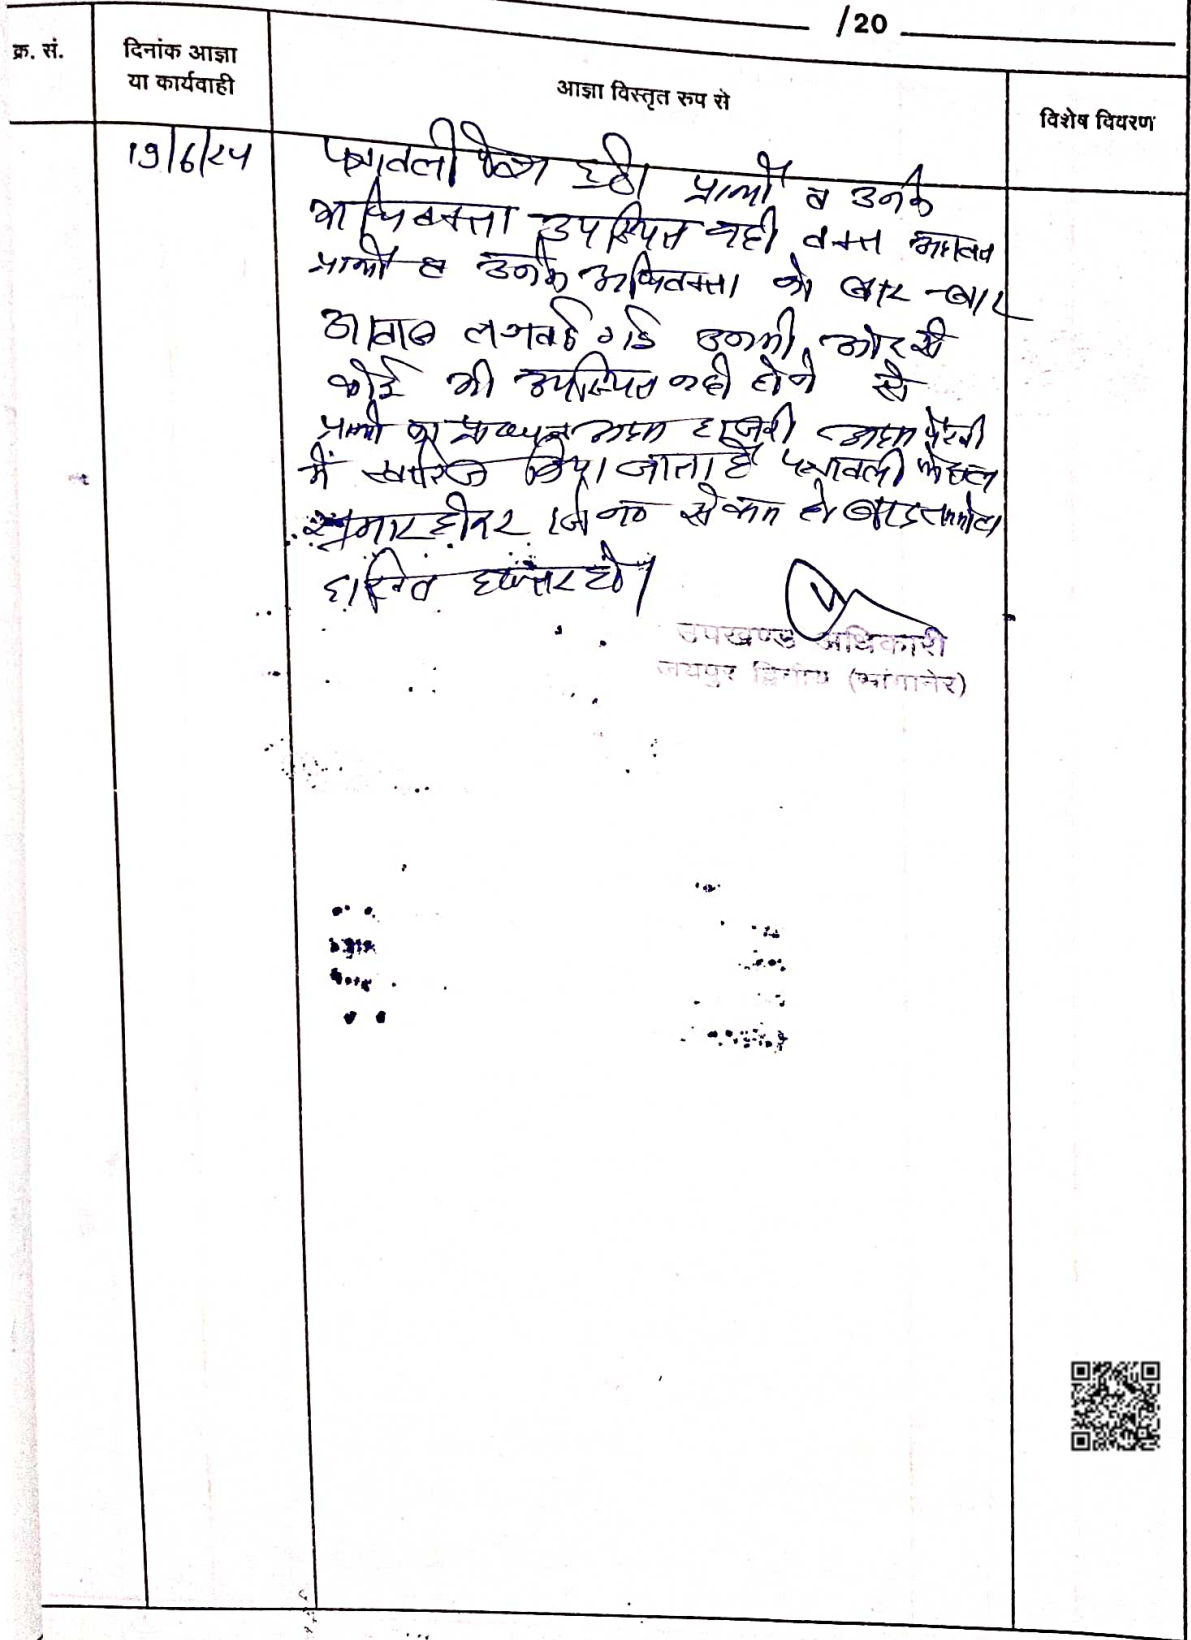 /20
क्र. सं.
दिनांक आज्ञा
या कार्यवाही
आज्ञा विस्तृत रुप से
विशेष विवरण
19/6/24
पत्रावली पेश हुई। प्रार्थी व उनके
अधिवक्ता उपस्थित नही वक्त
प्रार्थी व उनके अधिवक्ता को बार-बार
आवाज लगवाई गई उनकी ओर से
कोई भी उपस्थित नही होने से
प्रार्थी का अदम हाजरी अदम पैरवी
में खारिज किया जाता है पत्रावली फैसल
शुमार होकर नम्बर से कम हो बाद तकमील
दाखिल दफ्तर हो।
उपखण्ड अधिकारी
जयपुर द्वितीय (सांगानेर)